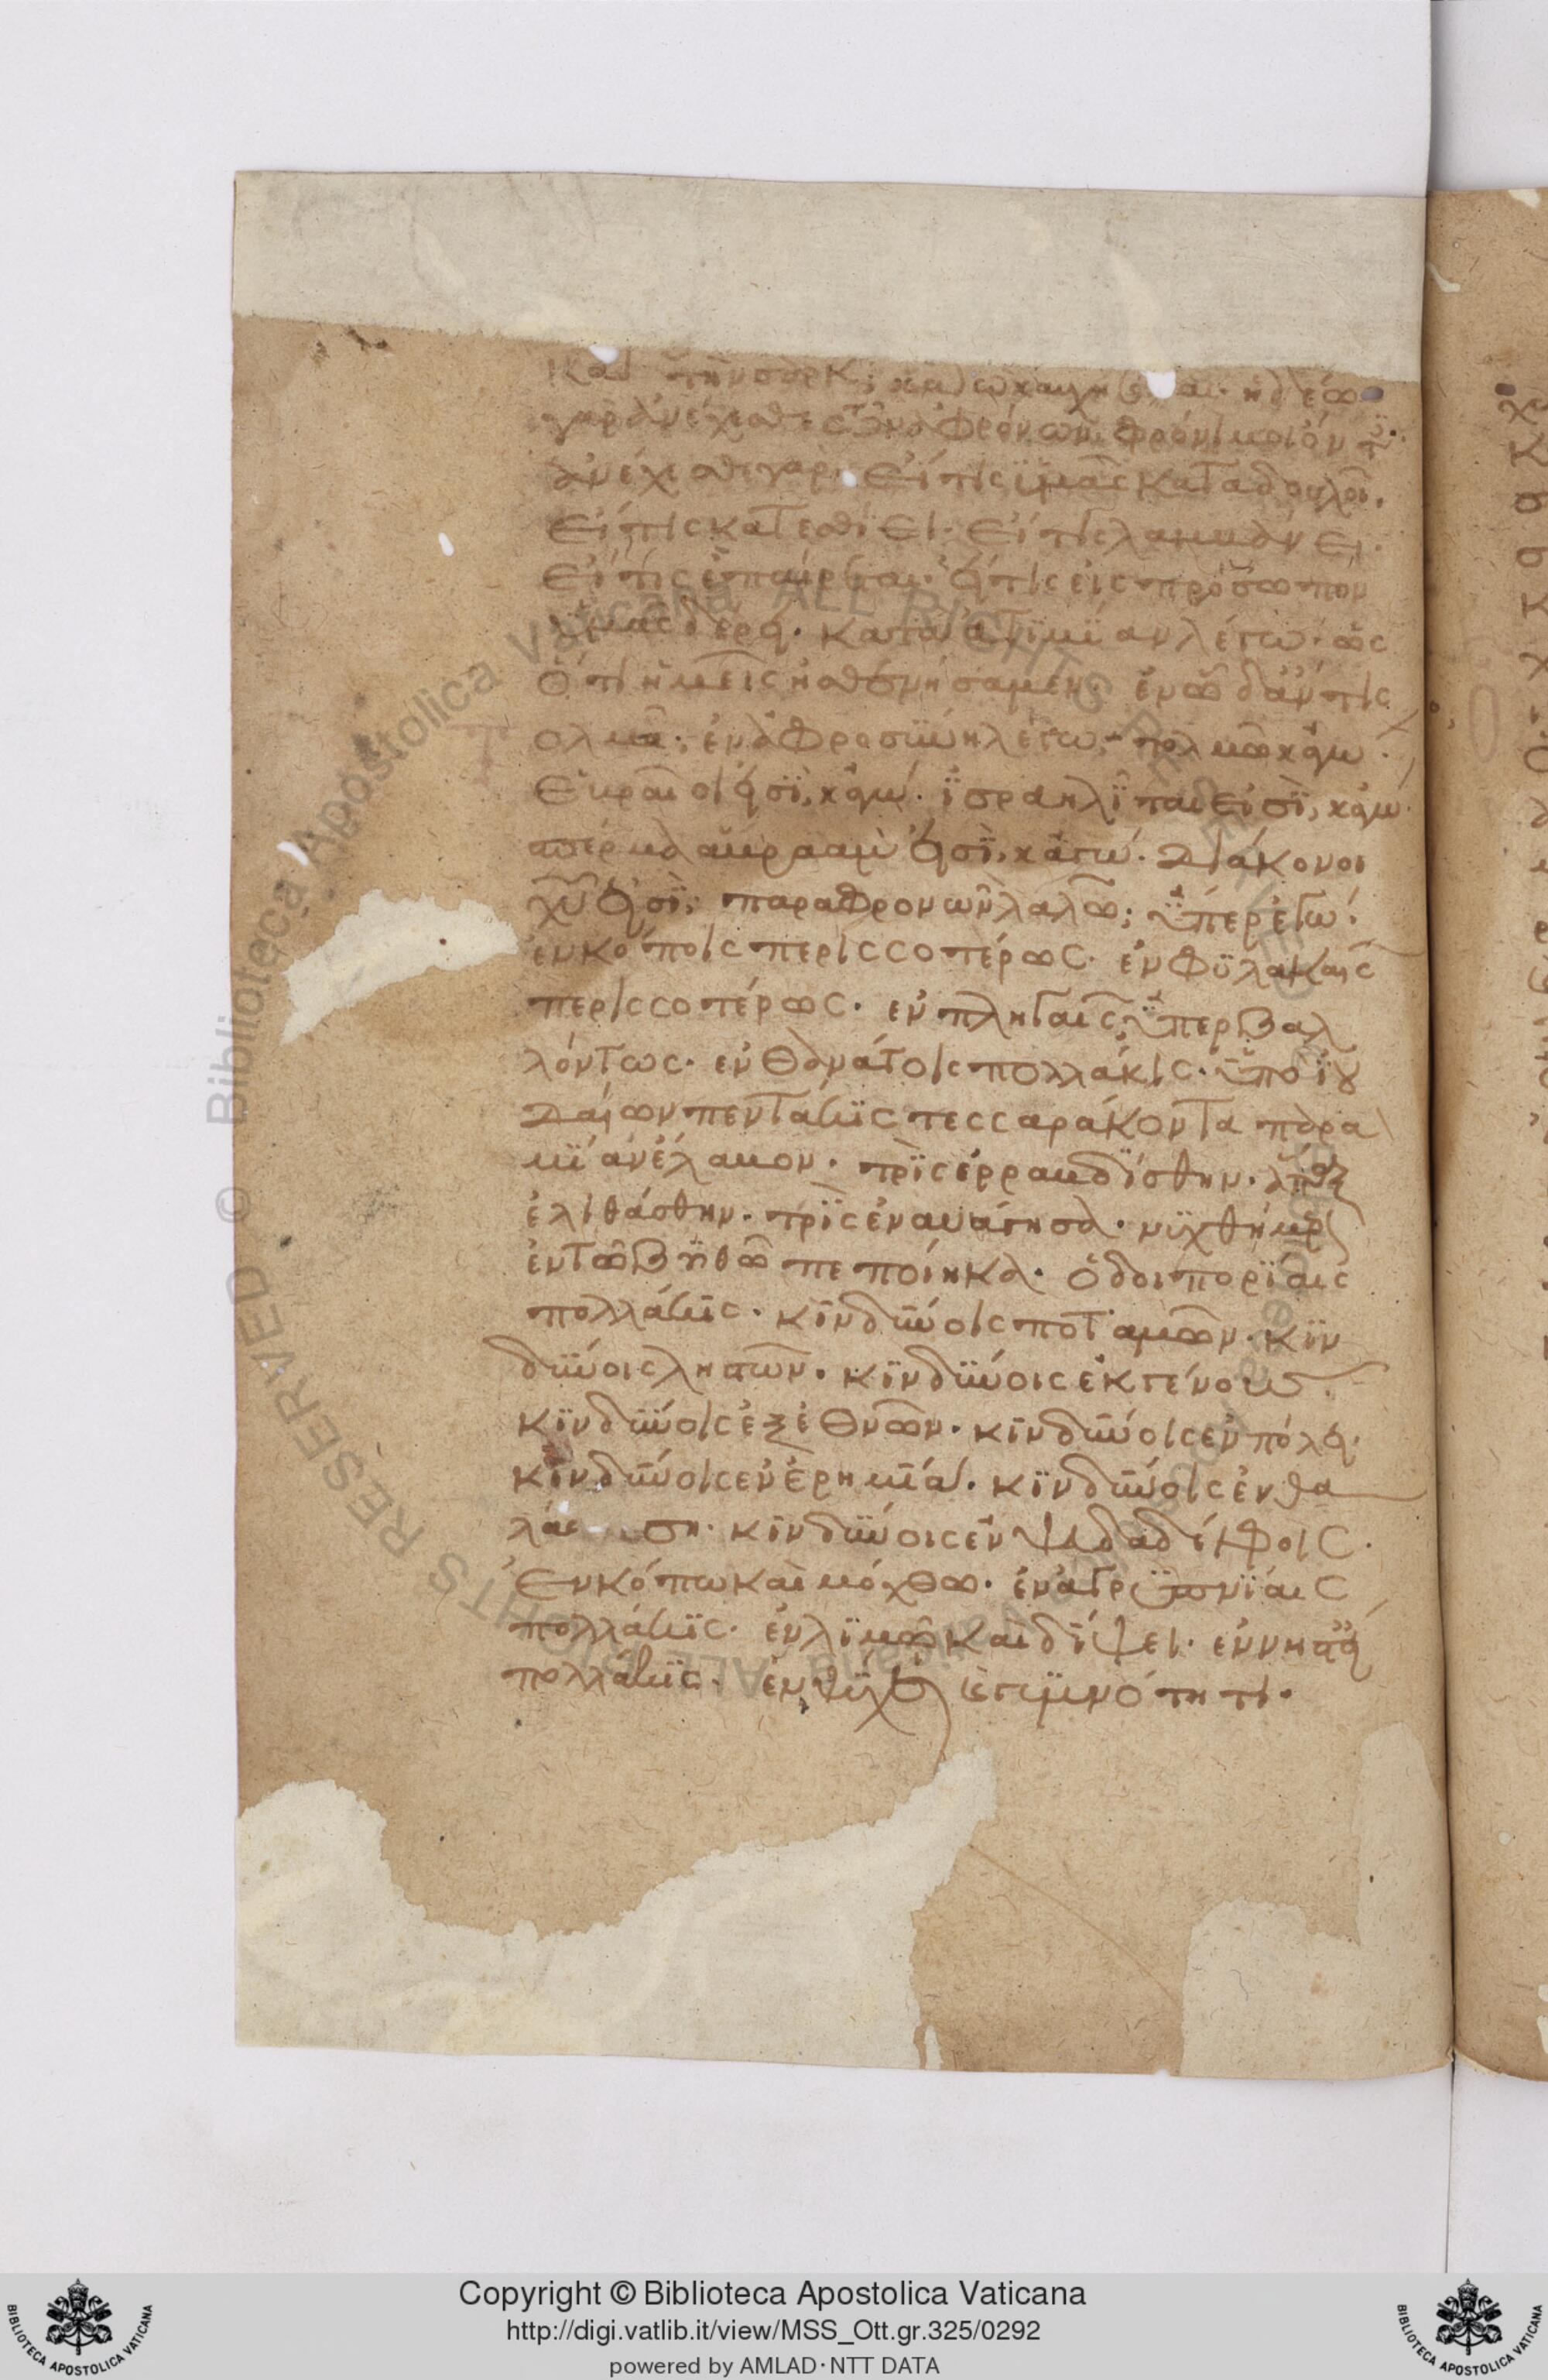 κατ τὴν σάρκ; κἀγὼ καυχήσομαι. ἡδέως
γὰρ ἀνέχεσθε τῶν ἀφρόνων φρόνιμοι ὄντ
ἀνέχεσθε γάρ. Εἴ τις ϋμᾶς καταδουλοῖ.
Εἴ τις κατεσθίει. Εἴ τις λαμβάνει.
Εἴ τις ἐπαίρεται. εἴ τις εἰς πρόσωπον
ϋμᾶς δέρει. κατὰ ἀτϊμΐαν λέγω. ὡς
ὅτι ἡμεῖς ἠσθενήσαμεν. ἐν ᾧ δ' ἄν τις
ολμᾶ. ἐν ἀφροσϋνη λέγω, τολμῶ κἀγώ.
Εβραῖοι εἰσΐ, κἀγώ. ϊσραηλΐται εἰσΐ, κἀγώ.
σπέρμα αβρααμ εἰσΐ, κἀγώ. Διάκονοι
χυ εἰσΐ, παραφρονῶν λαλῶ; ϋπερ ἐγώ.
ἐν κόποις περισσοτέρως. ἐν φϋλακαῖς
περισσοτέρως. ἐν πληγαῖς ϋπερβαλ
λόντως. ἐν θανάτοις πολλάκις. ϋπο ϊου
Δαίων πεντάκϊς τεσσαράκοντα παρα
μΐαν ἔλαβον. τρΐς ἐρραβδΐσθην. ἅπαξ
ἐλιθάσθην. τρΐς ἐναυάγησα. νϋχθήμερ
ἐν τῶ βϋθῶ πεποίηκα. ὁδοιπορΐαις
πολλάκϊς. κϊνδϋνοις ποταμῶν. κϊν
δϋνοις ληστῶν. κϊνδϋνοις ἐκ γένους.
κϊνδϋνοις ἐξ ἐθνῶν. κϊνδϋνοις ἐν πόλει.
κϊνδϋνοις ἐν ἐρημΐα. κϊνδϋνοις ἐν θα
λάσση. κϊνδϋνοις ἐν ψευδαδέλφοις.
Ἐν κόπω καὶ μόχθω. ἐν ἀγρϋπνΐαις
πολλάκϊς. ἐν λϊμῶ καὶ δίψει. ἐν νηστείαις
πολλάκϊς. ἐν ψϋχει καὶ γϋμνότητι.
Copyright © Biblioteca Apostolica Vaticana
http://digi.vatlib.it/view/MSS_Ott.gr.325/0292
powered by AMLAD·NTT DATA